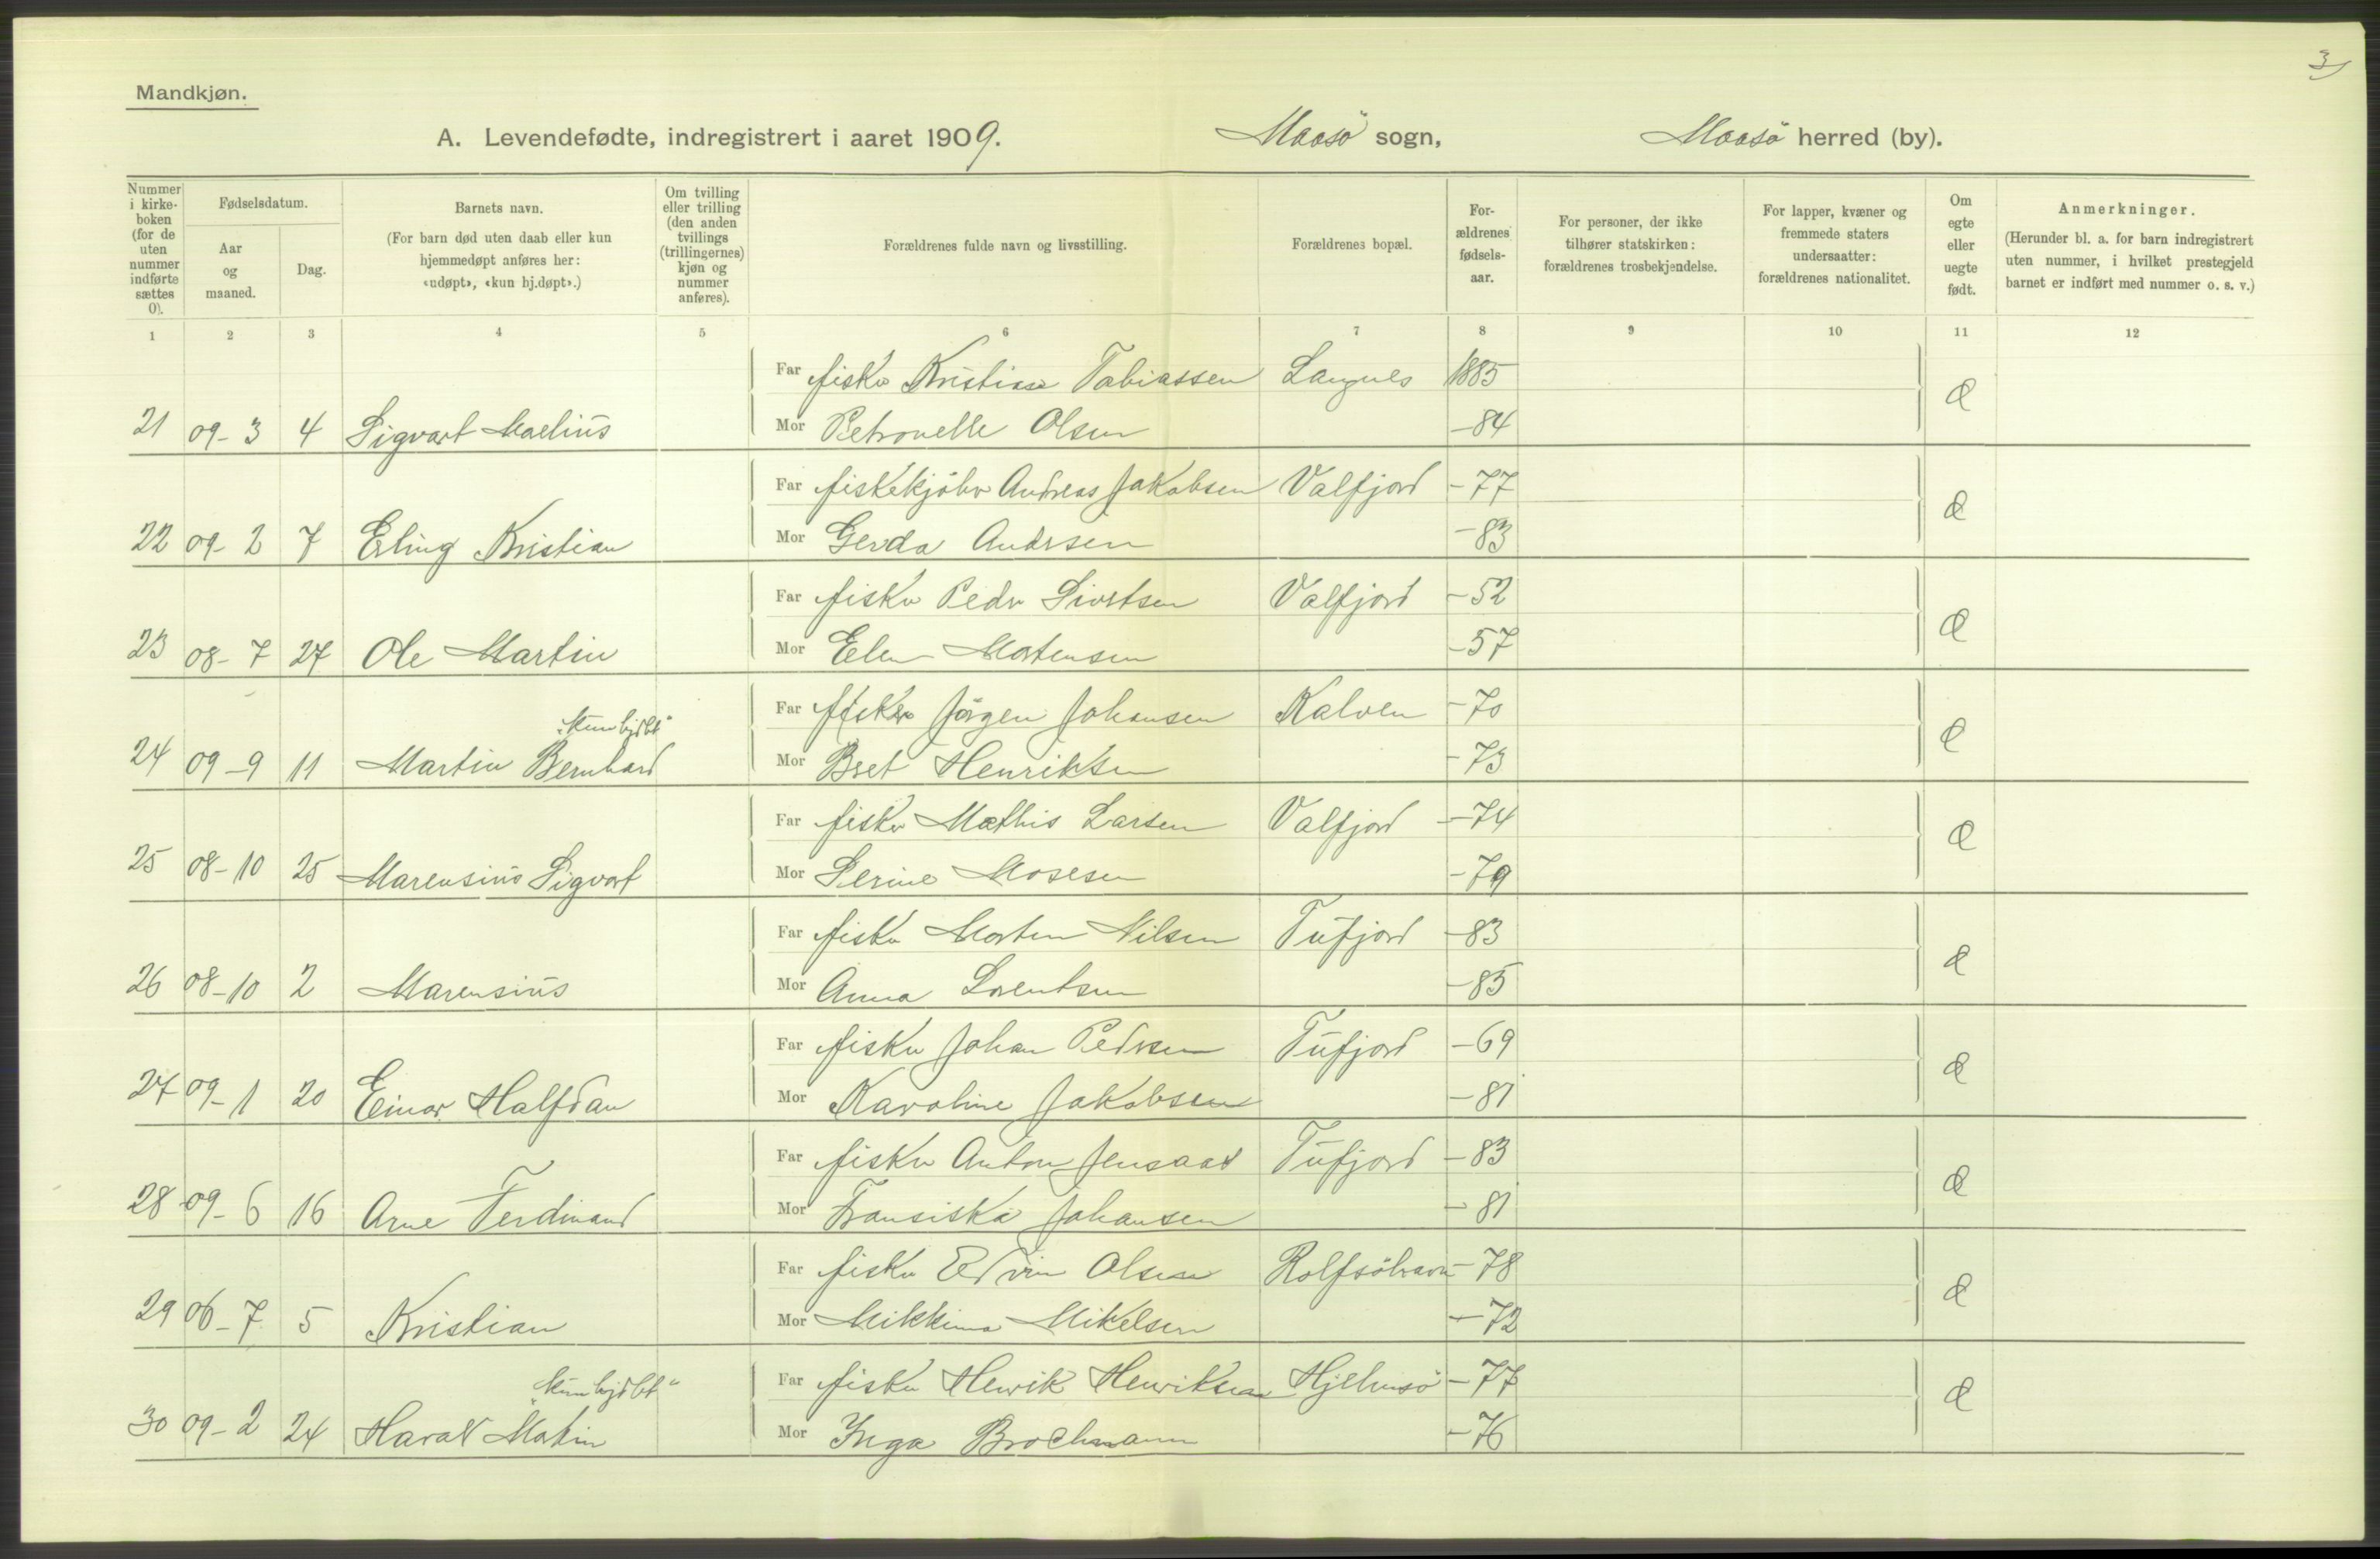 3)
Mandkjøn.
A. Levendefødte, indregistrert i aaret 1909. Maasö sogn, Maasö herred (by).
Nummer i kirke-boken (for de uten nummer indførte sættes 0).
Fødselsdatum.
Aar og maaned.
Dag.
Barnets navn.
(For barn død uten daab eller kun hjemmedøpt anføres her: «udøpt», «kun hj.døpt».)
Om tvilling eller trilling (den anden tvillings (trillingernes) kjøn og nummer anføres).
Forældrenes fulde navn og livsstilling.
Forældrenes bopæl.
For-ældrenes fødsels-aar.
For personer, der ikke tilhører statskirken: forældrenes trosbekjendelse.
For lapper, kvæner og fremmede staters undersaatter: forældrenes nationalitet.
Om egte eller uegte født.
Anmerkninger.
(Herunder bl. a. for barn indregistrert uten nummer, i hvilket prestegjeld barnet er indført med nummer o. s. v.)
1 2 3 4 5 6 7 8 9 10 11 12
Far fisker Kristian Tobiassen Langnes 1885
21 09-3 4 Sigvart Maelius Mor Petronelle Olsen -84 Æ
Far fiskekjøber Andreas Jakobsen Valfjord -77
22 09-2 7 Erling Kristian Mor Gerda Andersen -83 Æ
Far fisker Peder Sivertsen Valfjord -52
23 08-7 27 Ole Martin Mor Elen Mortensen -57 Æ
Far fisker Jørgen Johansen Kalven -70
"kun hjdbt"
24 09-9 11 Martin Bernhard Mor Beret Henriksen -73 Æ
Far fisker Mathis Larsen Valfjord -74
25 08-10 25 Marensius Sigvart Mor Serine Mosesen -79 Æ
Far fisker Morten Nilsen Tufjord -83
26 08-10 2 Marensius Mor Anna Lorentsen -85 Æ
Far fisker Johan Pedersen Tufjord -69
27 09-1 20 Einar Halfdan Mor Karoline Jakobsen -81 Æ
Far fisker Anton Jensaas Tufjord -83
28 09-6 16 Arne Ferdinand Mor Fransiska Johansen -81 Æ
Far fisker Edvin Olsen Rolfsöhavn -78
29 06-7 5 Kristian Mor Mikkima Mikelsen -72 Æ
Far fisker Henrik Henriksen Hjelmsö -77
"kun hjdbt"
30 09-2 24 Harald Martin Mor Inga Brochmann -76 Æ